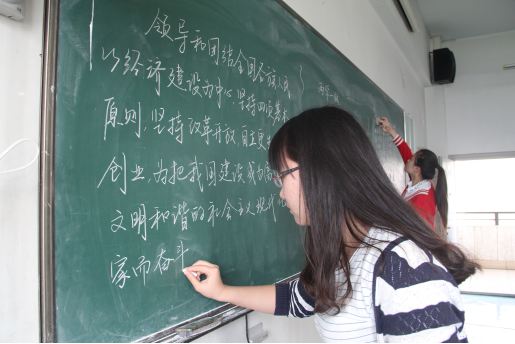 领导和团结全国各族人民
以经济建设为中心,坚持四项基本
原则,坚持改革开放,自力更生
创业,为把我国建设成为富
文明和谐的社会主义现代化
家而奋斗